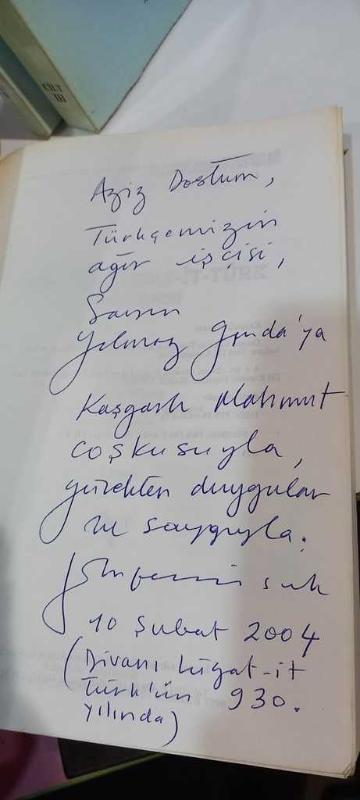 CİLT
III
Aziz Dostum,
Türkçemizin
ağır işçisi,
Sayın
Yılmaz 'ya
Kaşgarlı Mahmut
coşkusuyla,
yürekten duygular
ve saygıyla.
10 Şubat 2004
(Divanı Lûgat-it
Türk'ün 930.
yılında)